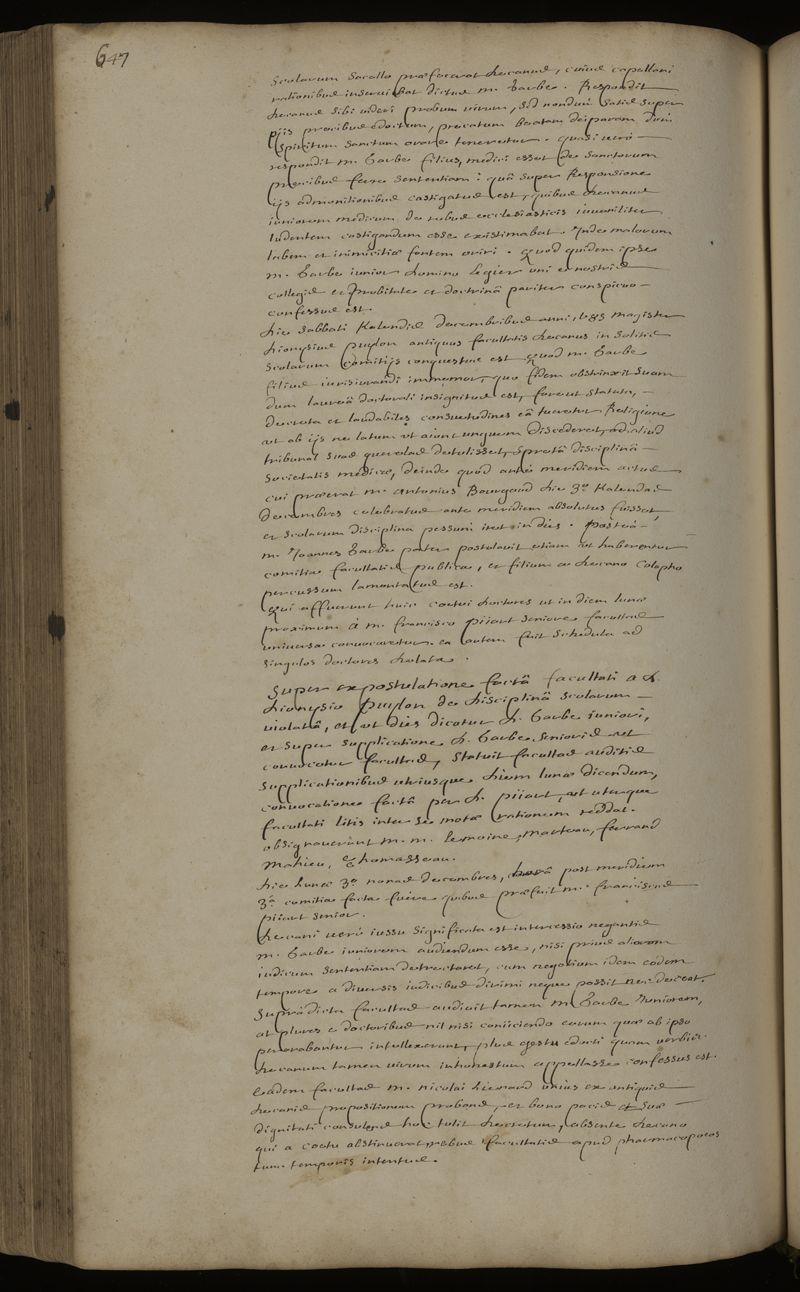 647
Scolarum Sacello præfecerat decanus, cuius capellani
rationibus inserviebat dictus m. Barbe. Respondit
decanus sibi videri probum virum, sed nondum satis super
piis precibus edoctum, precatum beatam deiparam dum
Spiritum Sanctum orare teneretur. quasi verò
respondit m. Barbe filius, medici esset de Sanctorum
precibus ferre Sententiam: quâ super Responsione
iis admonitionibus castigatus est, quibus decanus
iuniorem medicum de rebus ecclesiasticis iuveniliter
ludentem castigandum esse existimabat. Inde malorum
labem et inimicitiæ fontem oriri. quod quidem ipse
m. Barbe iunior domino Legier uni e nostris
collegis et probitate et doctrinâ pariter conspicuo
confessus est.
die Sabbati Kalendis decembribus anni, 1685 magister
dionysius Puylon antiquus facultatis decanus in Solitis
Scolarum Comitiis conquestus est quod m. Barbe
filius iurisiurandi immemor, quo fidem obstrinxit suam
dum laureâ doctorali insignitus est, fore ut statuta,
decreta et laudabiles consuetudines eâ tueretur Religione
ut ab iis ne latum ut aiunt unguem discederet, ad aliud
tribunal suas querelas detulisset, spretâ disciplinâ
Societatis medicæ, deinde quod ante meridiem actus
cui præerat m. Antonius Bourgaud die 3º Kalendas
decembres celebratus ante meridiem absolutus fuisset,
et scolarum disciplina pessum iret in dies. Posteà
m. Joannes Barbe pater postulavit etiam ut haberentur
comitia facultatis publica, et filium a decano colapho
percussum lamentatus est.
qui affuerunt huic coetui doctores ut in diem lunæ
proximum à m. francisco Pijart Seniore facultas
universa convocaretur. ea autem fuit Schedula ad
singulos doctores delata.
Super expostulatione factâ facultati a d.
dionysio Puylon de disciplinâ scolarum
violatâ, et ut dies dicatur d. Barbe iuniori,
et super supplicatione d. Barbe Senioris ut
convocetur facultas, statuit facultas auditis
supplicationibus utriusque diem lunæ dicendum,
convocatione factâ per d. pijart, ut uterque
facultati litis inter se motæ rationem reddat.
obsignaverunt m. m. lemoine, marteau, ferrand
Mahieu, & Thomasseau.
die lunæ 3º nonas decembres, horâ post meridiem
3ª comitia facta fuere quibus præfuit m. franciscus
pijart senior.
decani verò iussu significata est intercessio negantis
m. Barbe iuniorem audiendum esse, nisi prius aliorum
iudicum sententiam detrectaret, cum negotium idem eodem
tempore a diversis iudicibus dirimi neque possit nec deceat.
Supràdicta facultas audivit tamen m. Barbe Juniorem,
at plures e doctoribus nil nisi coniiciendo eorum quæ ab ipso
perorabantur intellexerunt, plus gestu edocti quam verbis.
decanum tamen virum inhonestum appellasse confessus est.
Eadem facultas m. nicolai Lienard unius ex antiquis
decanis propositionem probans, et bono pacis et suæ
dignitati consulens hoc tulit decretum, absente decano
qui a coetu abstinuerat rebus facultatis apud pharmacopoeos
tunc temporis intentus.